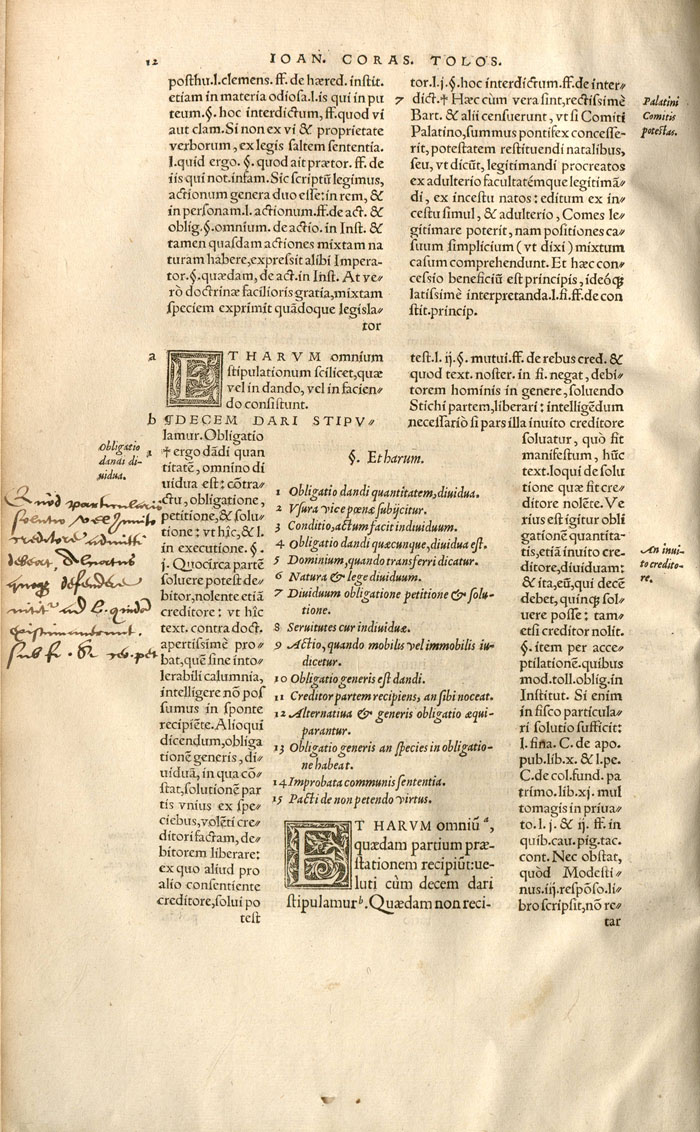 12
IOAN. CORAS. TOLOS.
posthu.l.clemens. ff. de hæred. instit.
etiam in materia odiosa.l.is qui in pu
teum.§. hoc interdictum, ff.quod vi
aut clam. Si non ex vi & proprietate
verborum, ex legis saltem sententia.
l.quid ergo. §. quod ait prætor. ff. de
iis qui not.infam. Sic scriptū legimus,
actionum genera duo esse: in rem, &
in personam.l. actionum.ff.de act. &
oblig.§.omnium. de actio. in Inst. &
tamen quasdam actiones mixtam na
turam habere,expressit alibi Impera-
tor.§.quædam, de act.in Inst. At ve-
rò doctrinæ facilioris gratia,mixtam
speciem exprimit quādoque legisla-
tor
tor.l.j.§.hoc interdictum.ff.de inter-
7 dict.† Hæc cùm vera sint,rectissimè
Bart. & alii censuerunt, vt si Comiti
Palatino,summus pontifex concesse-
rit, potestatem restituendi natalibus,
seu, vt dicūt, legitimandi procreatos
ex adulterio facultatémque legitimā-
di, ex incestu natos: editum ex in-
cestu simul, & adulterio, Comes le-
gitimare poterit, nam positiones ca-
suum simplicium (vt dixi) mixtum
casum comprehendunt. Et hæc con-
cessio beneficiū est principis, ideóq;
latissimè interpretanda.l.fi.ff.de con
stit.princip.
Palatini
Comitis
potestas.
a
ETHARVM omnium
stipulationum scilicet,quæ
vel in dando, vel in facien-
do consistunt.
b ¶DECEM DARI STIPV-
lamur. Obligatio
1 † ergo dādi quan
titatē, omnino di
uidua est: cōtra-
ctu, obligatione,
petitione,& solu-
tione: vt hîc, & l.
in executione. §.
j. Quocirca partē
soluere potest de-
bitor,nolente etiā
creditore: vt hîc
text. contra doct.
apertissimè pro-
bat,quē sine into-
lerabili calumnia,
intelligere nō pos
sumus in sponte
recipiēte. Alioqui
dicendum,obliga
tionē generis, di-
uiduā, in qua cō-
stat,solutionē par
tis vnius ex spe-
ciebus,volēti cre-
ditori factam, de-
bitorem liberare:
ex quo aliud pro
alio consentiente
creditore,solui po
test
Obligatio
dandi di-
uidua.
Quòd particularis
solutio vel Inuito
creditore admitti
debeat, Almatus
quoq; defendere
nititur ad l. quidā
existimauerunt.
sub fi. ff. reb. pet
§. Et harum.
1 Obligatio dandi quantitatem, diuidua.
2 Vsura vice pœnæ subijcitur.
3 Conditio,actum facit indiuiduum.
4 Obligatio dandi quæcunque,diuidua est.
5 Dominium,quando transferri dicatur.
6 Natura & lege diuiduum.
7 Diuiduum obligatione petitione & solu-
tione.
8 Seruitutes cur indiuiduæ.
9 Actio, quando mobilis vel immobilis iu-
dicetur.
10 Obligatio generis est dandi.
11 Creditor partem recipiens, an sibi noceat.
12 Alternatiua & generis obligatio æqui-
parantur.
13 Obligatio generis an species in obligatio-
ne habeat.
14 Improbata communis sententia.
15 Pacti de non petendo virtus.
ET HARVM omniū a,
quædam partium præ-
stationem recipiūt:ue-
luti cùm decem dari
stipulamur b. Quædam non reci-
test.l. ij.§. mutui.ff. de rebus cred. &
quod text. noster. in fi. negat, debi-
torem hominis in genere, soluendo
Stichi partem,liberari: intelligēdum
necessariò si pars illa inuito creditore
soluatur, quò fit
manifestum, hūc
text.loqui de solu
tione quæ fit cre-
ditore nolēte. Ve
rius est igitur obli
gationē quantita-
tis,etiā inuito cre-
ditore,diuiduam:
& ita,eū,qui decē
debet, quinq; sol-
uere posse: tam-
etsi creditor nolit.
§. item per acce-
ptilationē.quibus
mod.toll.oblig.in
Institut. Si enim
in fisco particula-
ri solutio sufficit:
l. fina. C. de apo.
pub.lib.x. & l.pe.
C.de col.fund. pa
trimo.lib.xj. mul
tomagis in priua-
to. l. j. & ij. ff. in
quib.cau.pig.tac.
cont. Nec obstat,
quòd Modesti-
nus.iij.respōso.li-
bro scripsit,nō re-
tar
An inui-
to credito-
re.